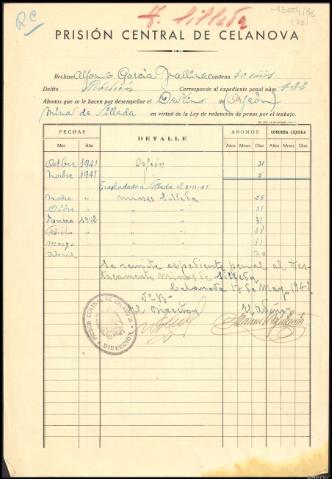 RC
F. Silleda
PRISIÓN CENTRAL DE CELANOVA
Recluso Alfonso García Condena 30 años
Delito Rebelión Corresponde al expediente penal núm.
Abonos que se le hacen por desempeñar el Destino de (Orfeón
Mina de Silleda en virtud de la Ley de redención de penas por el trabajo.
FECHAS DETALLE ABONOS CONDENA LÍQUIDA
Mes Año Años Meses Días Años Meses Días
Octbre 1941 Orfeón 31
Nvbre 1941 " 5
Trasladado a Silleda el 5-11-41
Nvbre " minas Silleda 25
Dcbre " " 31
Enero 1942 "
" "
Marzo " "
Abril " " 30
Se remite expediente penal al Des-
tacamento Minas de Silleda.
Celanova 17 de Mayo 1942
Vº Bº
El Director
PRISIÓN CENTRAL DE CELANOVA
DIRECCIÓN